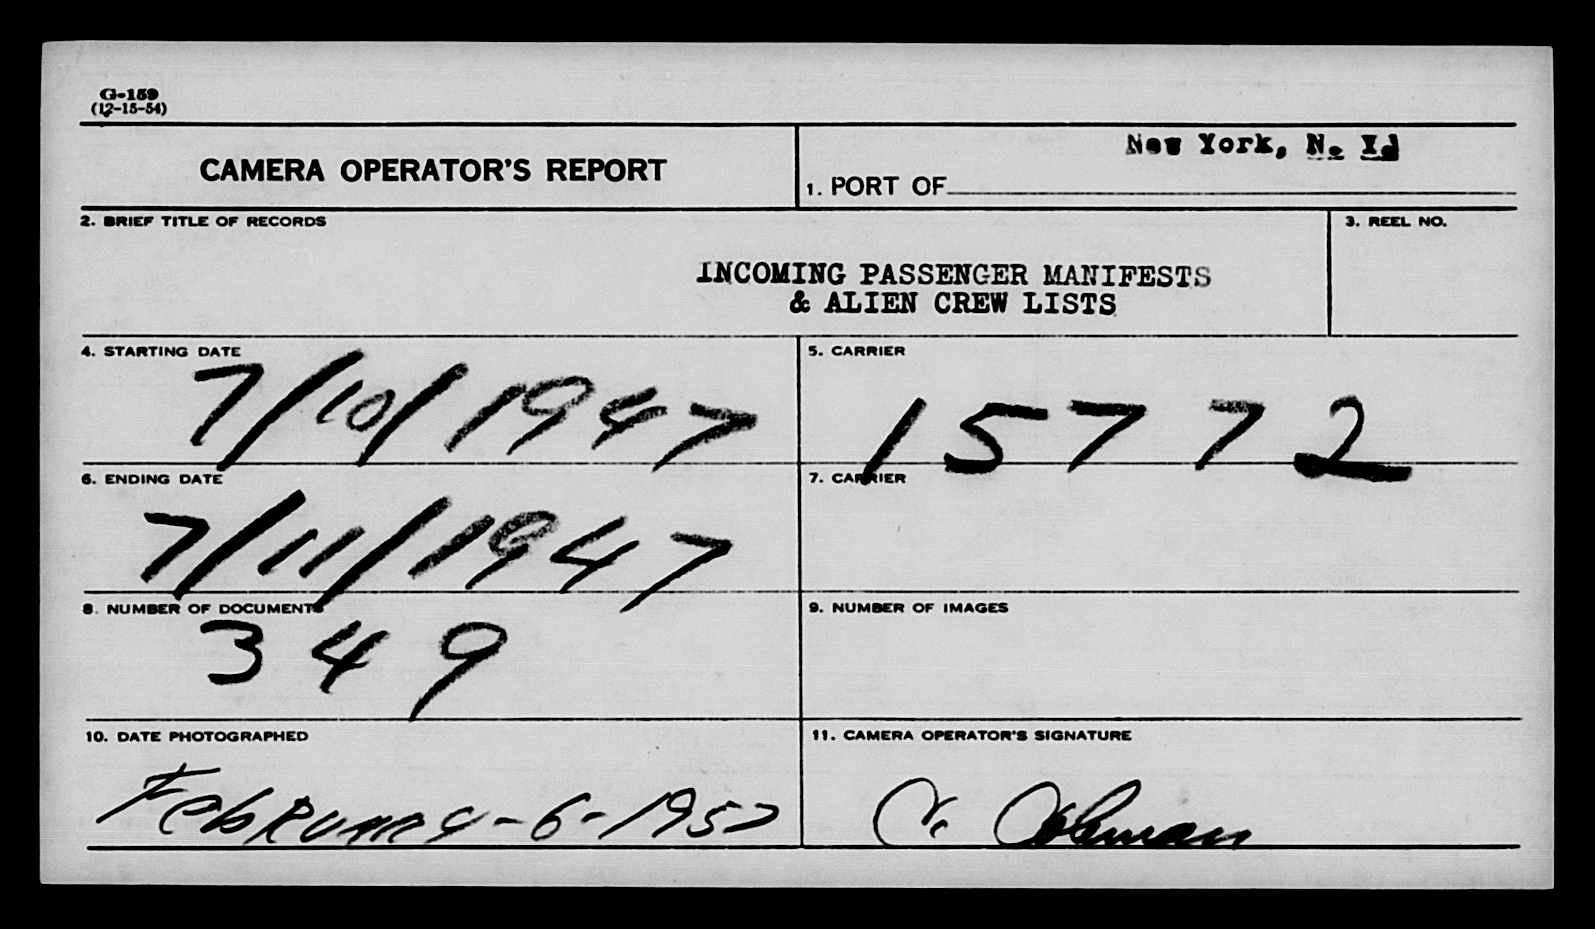 G-159
(12-15-54)
CAMERA OPERATOR'S REPORT
New York, N. Y.
1. PORT OF
2. BRIEF TITLE OF RECORDS
3. REEL NO.
INCOMING PASSENGER MANIFESTS
& ALIEN CREW LISTS
4. STARTING DATE
7/10/1947
5. CARRIER
15772
6. ENDING DATE
7/11/1947
7. CARRIER
8. NUMBER OF DOCUMENTS
349
9. NUMBER OF IMAGES
10. DATE PHOTOGRAPHED
February-6-1957
11. CAMERA OPERATOR'S SIGNATURE
C. Coleman